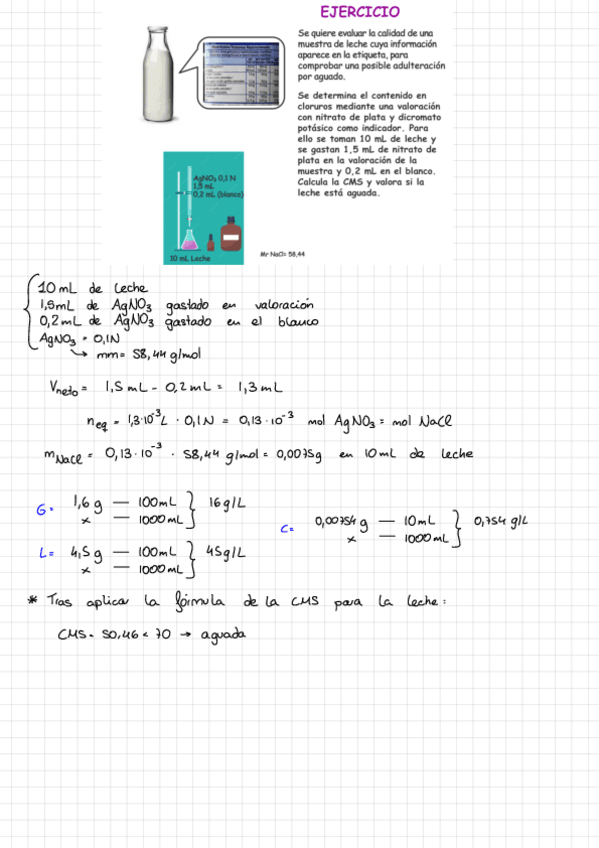 EJERCICIO
Se quiere evaluar la calidad de una
muestra de leche cuya información
aparece en la etiqueta, para
comprobar una posible adulteración
por aguado.
Se determina el contenido en
cloruros mediante una valoración
con nitrato de plata y dicromato
potásico como indicador. Para
ello se toman 10 mL de leche y
se gastan 1,5 mL de nitrato de
plata en la valoración de la
muestra y 0,2 mL en el blanco.
Calcula la CMS y valora si la
leche está aguada.
AgNO₃ 0,1 N
1,5 mL
0,2 mL (blanco)
10 mL Leche
Mr NaCl= 58,44
10 mL de leche
1,5mL de AgNO₃ gastado en valoración
0,2mL de AgNO₃ gastado en el blanco
AgNO₃ = 0,1N
↳ mm= 58,44 g/mol
Vneto = 1,5 mL - 0,2 mL = 1,3 mL
neq = 1,3·10⁻³L · 0,1N = 0,13·10⁻³ mol AgNO₃ = mol NaCl
mNaCl = 0,13·10⁻³ · 58,44 g/mol = 0,0075g en 10mL de leche
G= 1,6 g — 100mL } 16g/L
x — 1000mL
C= 0,00754 g — 10mL } 0,754 g/L
x — 1000mL
L= 4,5 g — 100mL } 45g/L
x — 1000mL
* Tras aplicar la fórmula de la CMS para la leche:
CMS= 50,46 < 70 → aguada